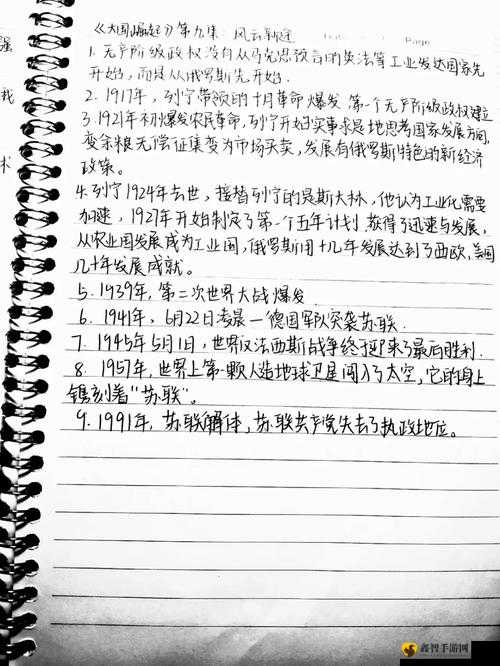 《大国崛起》第九集：风云新途
Page
1. 无产阶级政权没有从马克思预言的英法等工业发达国家先
开始，而是从俄罗斯先开始.
2. 1917年，列宁带领的十月革命爆发 第一个无产阶级政权建立
3. 1921年初爆发农民革命，列宁开始实事求是地思考国家发展方向，
变余粮无偿征集变为市场买卖，发展有俄罗斯特色的新经济
政策。
4. 列宁1924年去世，接替列宁的是斯大林，他认为工业化需要
加速，1927年开始制定了第一个五年计划.获得了迅速与发展，
从农业国发展成为工业国，俄罗斯用十几年发展达到了西欧，美国
几十年发展成就。
5. 1939年，第二次世界大战爆发
6. 1941年，6月22日凌晨一德国军队突袭苏联.
7. 1945年5月1日，世界反法西斯战争终于迎来了最后胜利.
8. 1957年，世界上第一颗人造地球卫星闯入了太空，它的身上
镌刻着“苏联”。
9. 1991年，苏联解体，苏联共产党失去了执政地位。
强
我
术
鑫智手游网